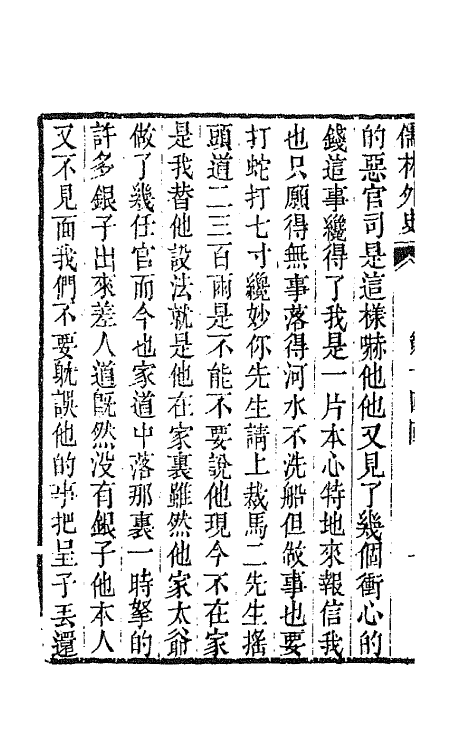 儒林外史 第十四回 一
的惡官司是這樣嚇他他又見了幾個衝心的
錢這事纔得了我是一片本心特地來報信我
也只願得無事落得河水不洗船但做事也要
打蛇打七寸纔妙你先生請上裁馬二先生搖
頭道二三百兩是不能不要說他現今不在家
是我替他設法就是他在家裏雖然他家太爺
做了幾任官而今也家道中落那裏一時拏的
許多銀子出來差人道旣然没有銀子他本人
又不見面我們不要躭誤他的事把呈子丟還